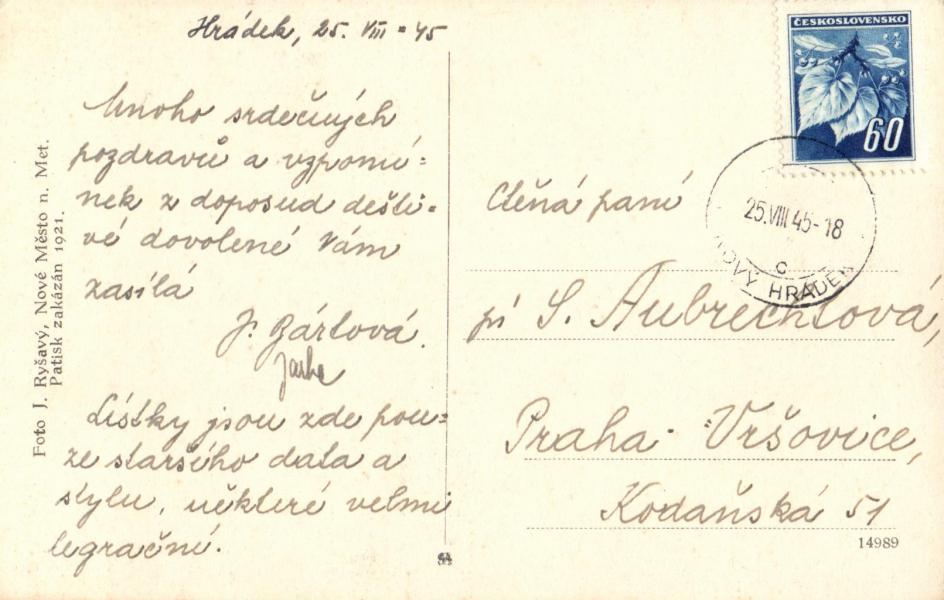 Hrádek, 25. VIII = 45
Mnoho srdečných
pozdravů a vzpomí=
nek z doposud dešti=
vé dovolené Vám
zasílá
J. Bártová.
Lístky jsou zde pou=
ze staršího data a
stylu, některé velmi
legrační.
Foto J. Ryšavý, Nové Město n. Met.
Patisk zakázán 1921.
ČESKOSLOVENSKO
60
25.VIII.45-18
C
NOVÝ HRÁDEK
Ctěná paní
pí S. Aubrechtová,
Praha - Vršovice,
Kodaňská 51
14989